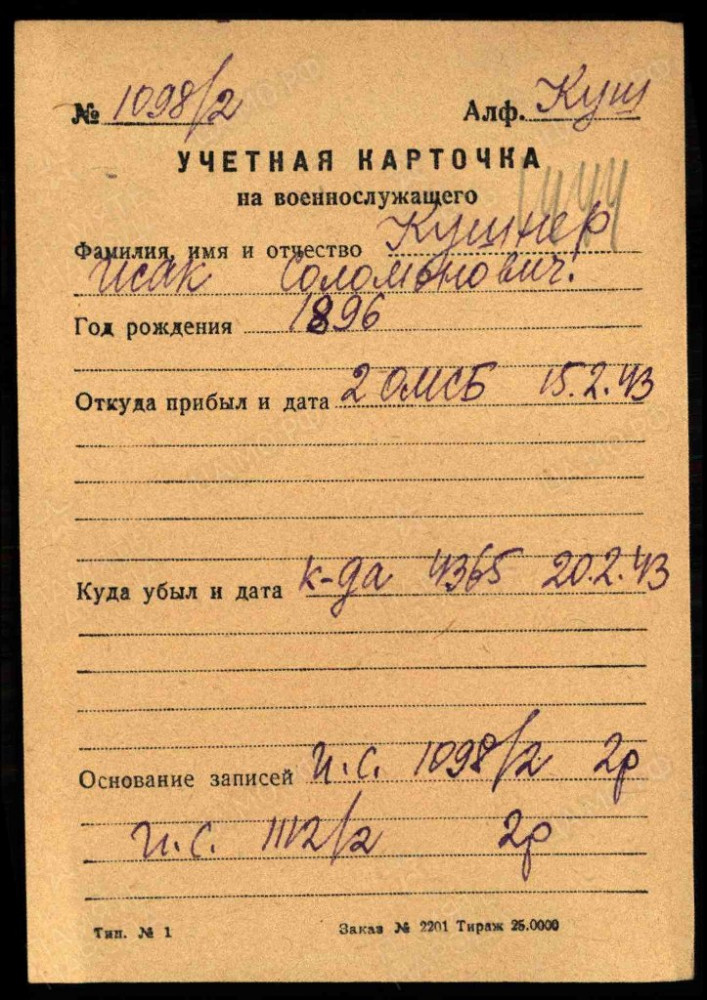 № 1098/2 Алф. Куш
УЧЕТНАЯ КАРТОЧКА
на военнослужащего
Фамилия, имя и отчество Кушнер
Исак Соломонович.
Год рождения 1896
Откуда прибыл и дата 2 ОМСБ 15.2.43
Куда убыл и дата к-да 4365 20.2.43
Основание записей И.С. 1098/2 2р
И.С. 1112/2 2р
Тип. № 1 Заказ № 2201 Тираж 25.0000